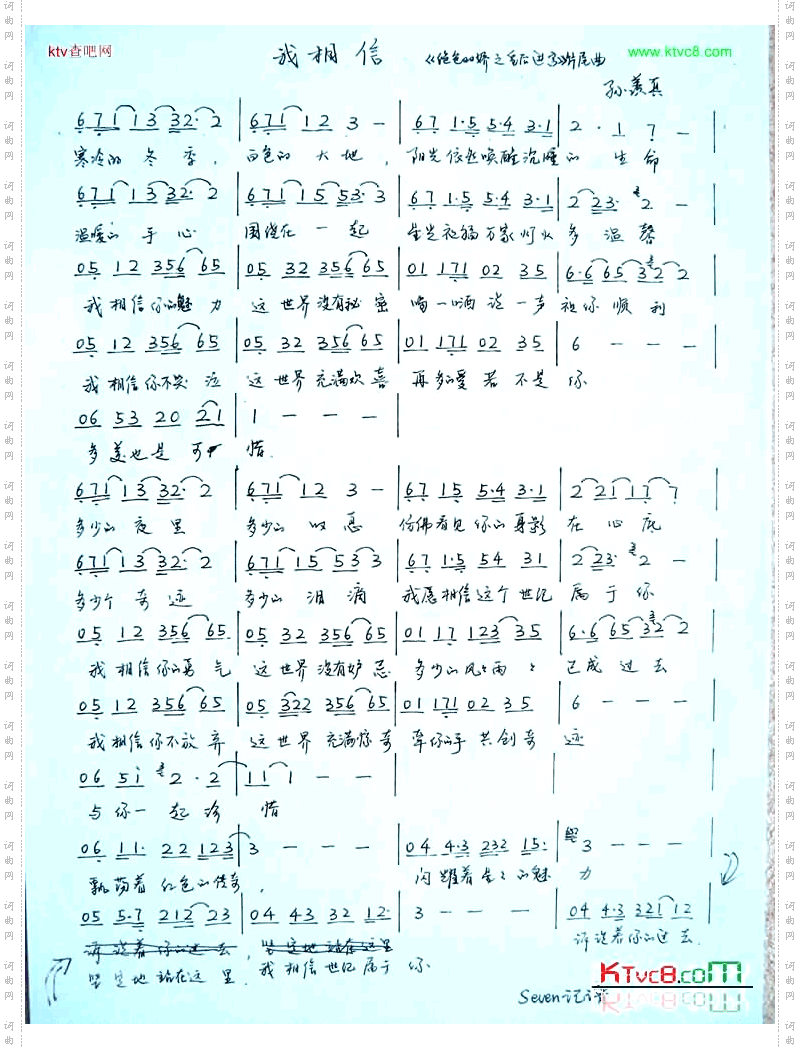 ktv查吧网
www.ktvc8.com
我相信
孙羡真
671 13 32·2 | 671 12 3 — | 67 1·5 5·4 3·1 | 2 · 1 7 —
寒冷的 冬 季, 白色的 大 地, 阳光依然唤醒沉睡的 生 命
671 13 32·2 | 671 15 53·3 | 67 1·5 5·4 3·1 | 2 23· 2 —
温暖的 手 心 围绕在 一 起 万家灯火 多 温 馨
05 12 356 65 | 05 32 356 65 | 01 171 02 35 | 6·6 65 32 2
我 相信你的魅 力 这 世界没有秘 密 说一声 祝你 顺 利
05 12 356 65 | 05 32 356 65 | 01 171 02 35 | 6 — — —
我 相信你不哭 泣 这 世界充满欢喜 再多的爱 若 不是 你
06 53 20 21 | 1 — — —
多美也是 可 惜.
671 13 32·2 | 671 12 3 — | 67 15 5·4 3·1 | 2 21 17 7
多少的 夜 里 多少的 仿佛看见 你的身影 在 心 底
671 13 32·2 | 671 15 53 3 | 67 1·5 54 31 | 2 23· 2 —
多少个 奇 迹 多少的 泪 滴 我愿相信这个 世纪 属 于 你
05 12 356 65 | 05 32 356 65 | 01 17 123 35 | 6·6 65 32·2
我 相信你的勇 气 这 世界 没有妒 忌 多少的风风雨雨 已成 过 去
05 12 356 65 | 05 322 356 65 | 01 171 02 35 | 6 — — —
我 相信你不放 弃 这 世界 充满惊奇 牵你的手 共创奇 迹
06 5i 2·2 | 11 1 — —
与 你一 起珍 惜
06 11· 22 123 | 3 — — — | 04 4·3 232 15· | 3 — — —
飘荡着 红色的传奇, 闪耀着 的魅 力
05 5·7 212 23 | 04 43 32 12· | 3 — — — | 04 4·3 321 12
诉说着 你的过 去, 坚定地 站在这里 诉说着你的过 去.
坚 定地 站在这 里. 我 相信世纪属于 你
KTvc8.com
Seven记谱
词曲网